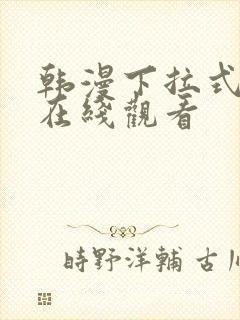 韩漫下拉式
在线觀看
時野洋輔 古川